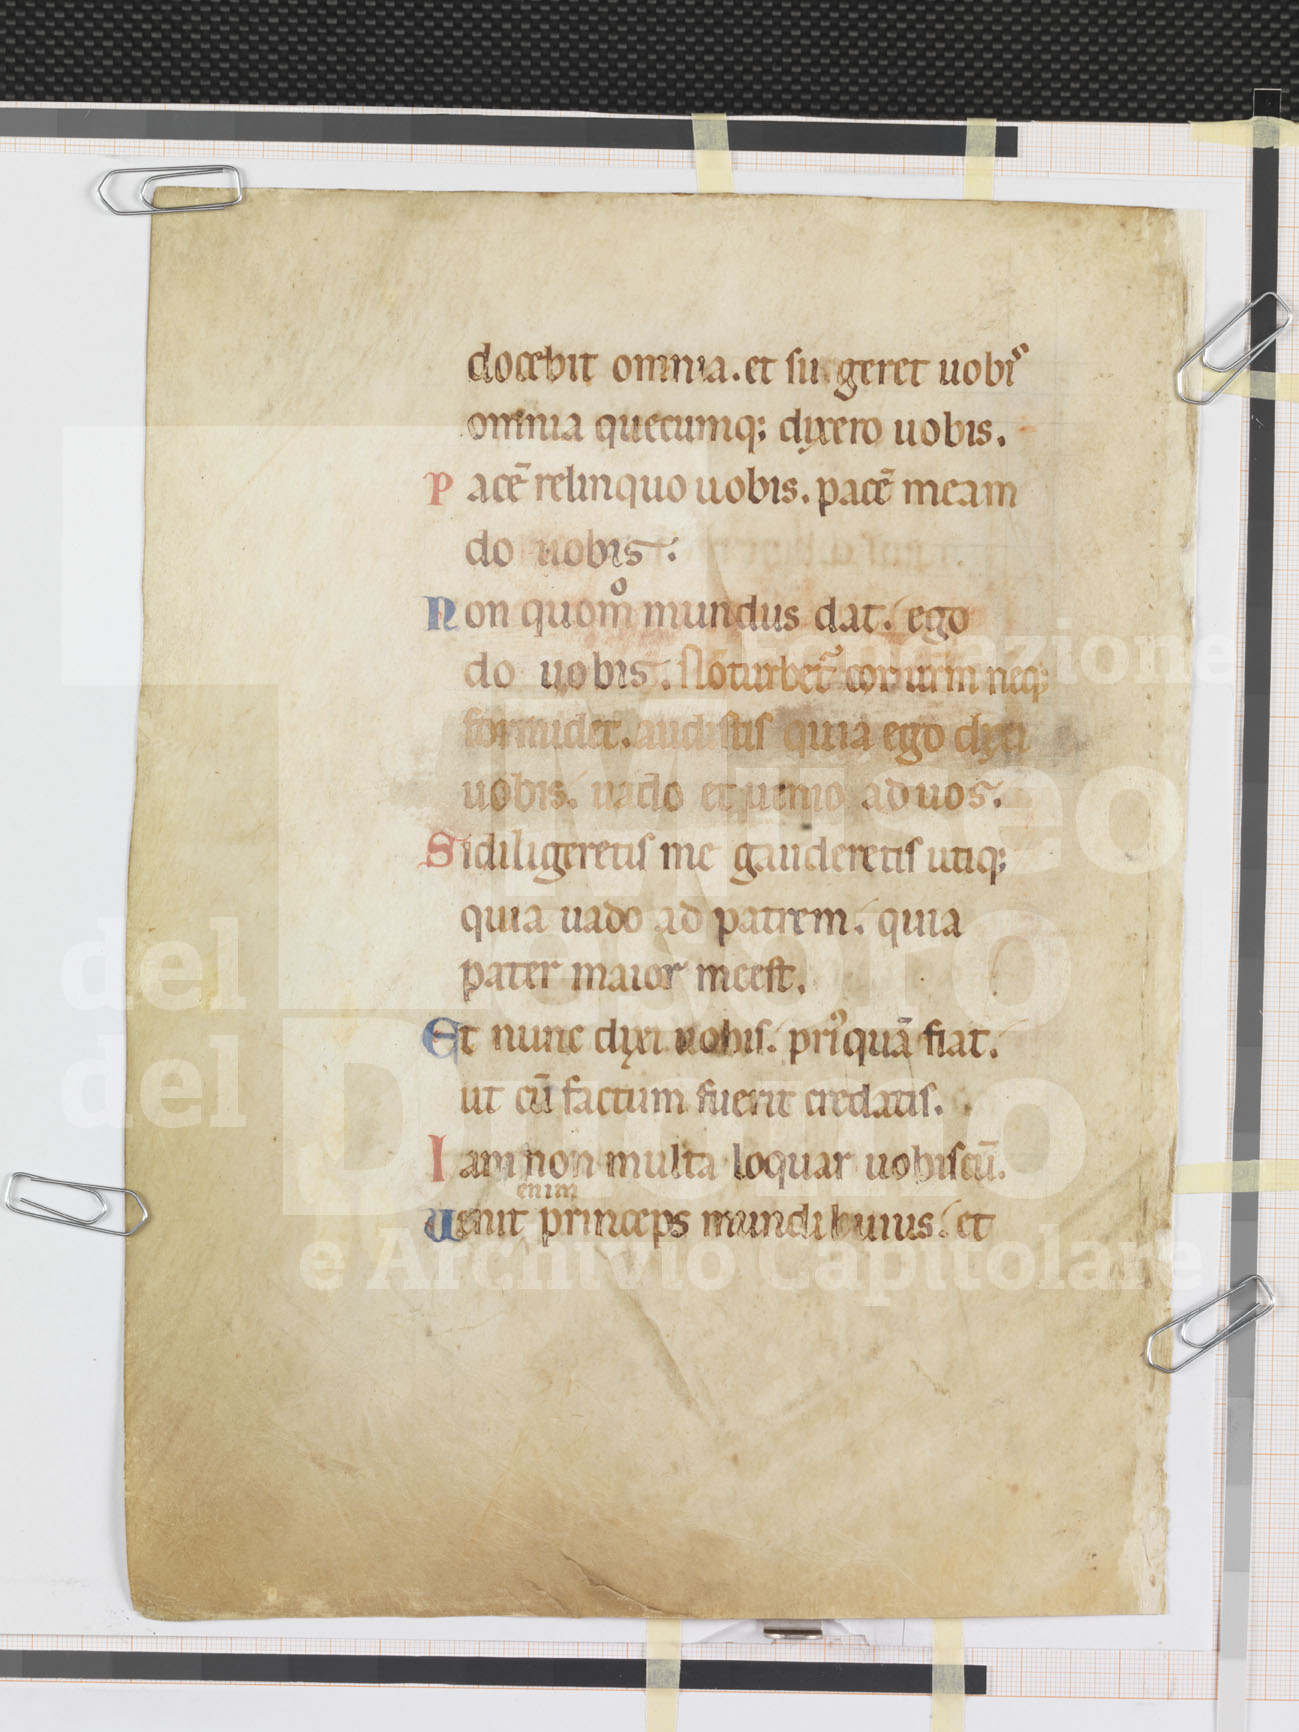 docebit omnia. et su geret uobis
omnia quecumq; dixero uobis.
Pacē relinquo uobis. pacē meam
do uobis:
Non quom̊ mundus dat. ego
do uobis. Nō turbet᷑ cor urm neq;
formidet. audistis quia ego dixi
uobis. uado et uenio ad uos.
Si diligeretis me gauderetis utiq;
quia uado ad patrem. quia
pater maior me est.
Et nunc dixi uobis. pri᷒quā fiat.
ut cū factum fuerit credatis.
Iam non multa loquar uobiscū.
enim
Uenit princeps mundi huius. et
Fondazione
Museo
del Tesoro
del Duomo
e Archivio Capitolare